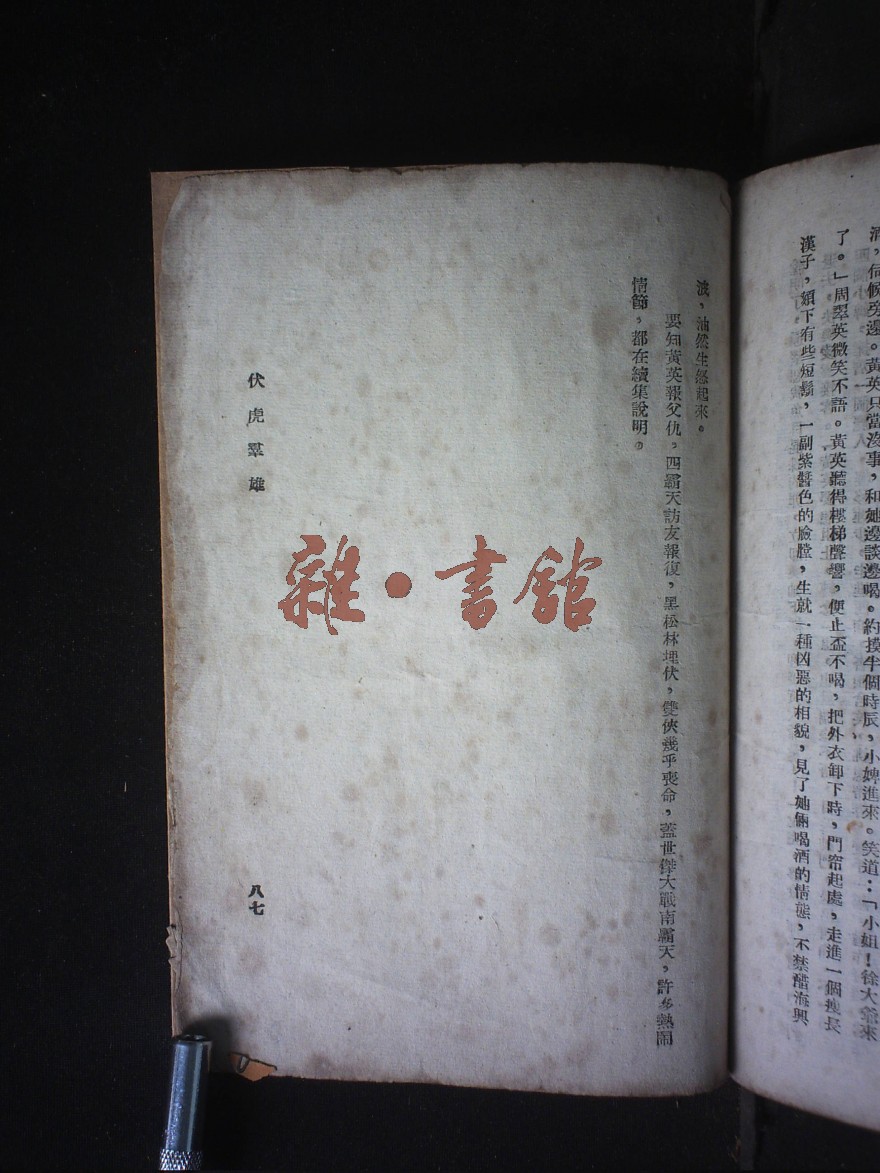 酒，伺候旁邊。黃英只當沒事，和她邊談邊喝。約摸半個時辰，小婢進來。笑道：「小姐！徐大爺來
了。」周翠英微笑不語。黃英聽得樓梯聲響，便止盃不喝，把外衣卸下時，門帘起處，走進一個瘦長
漢子，頦下有些短鬚，一副紫醬色的臉膛，生就一種凶惡的相貌，見了她倆喝酒的情態，不禁醋海興
波，油然生怒起來。
要知黃英報父仇，四霸天訪友報復，黑松林埋伏，雙俠幾乎喪命，蓋世傑大戰南霸天，許多熱鬧
情節，都在續集說明。
伏虎羣雄
八七
雜·書館